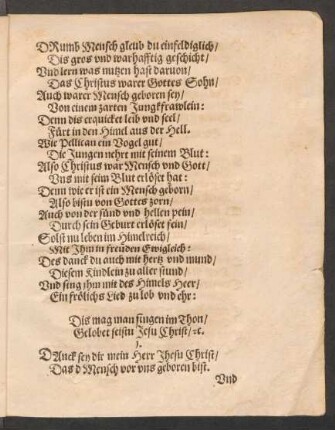 DRumb Mensch gleub du einfeldiglich/
Dis gros vnd warhafftig geschicht/
Vnd lern was nutzen hast daruon/
Das Christus warer Gottes Sohn/
Auch warer Mensch geboren sey/
Von einem zarten Jungkfrawlein:
Denn dis erquicket leib vnd seel/
Fürt in den Himel aus der Hell.
Wie Pellican ein Vogel gut/
Die Jungen nehrt mit seinem Blut:
Also Christus war Mensch vnd Gott/
Vns mit seim Blut erlöset hat:
Denn wie er ist ein Mensch geborn/
Also bistu von Gottes zorn/
Auch von der sünd vnd hellen pein/
Durch sein Geburt erlöset fein/
Solst nu leben im Himelreich/
Mit Ihm in freuden Ewigleich:
Des danck du auch mit hertz vnd mund/
Diesem Kindlein zu aller stund/
Vnd sing ihm mit des Himels Heer/
Ein frölichs Lied zu lob vnd ehr:
Dis mag man singen im Thon/
Gelobet seistu Jesu Christ/ ꝛc.
1.
DAnck sey dir mein Herr Jhesu Christ/
Das d Mensch vor vns geboren bist.
Vnd